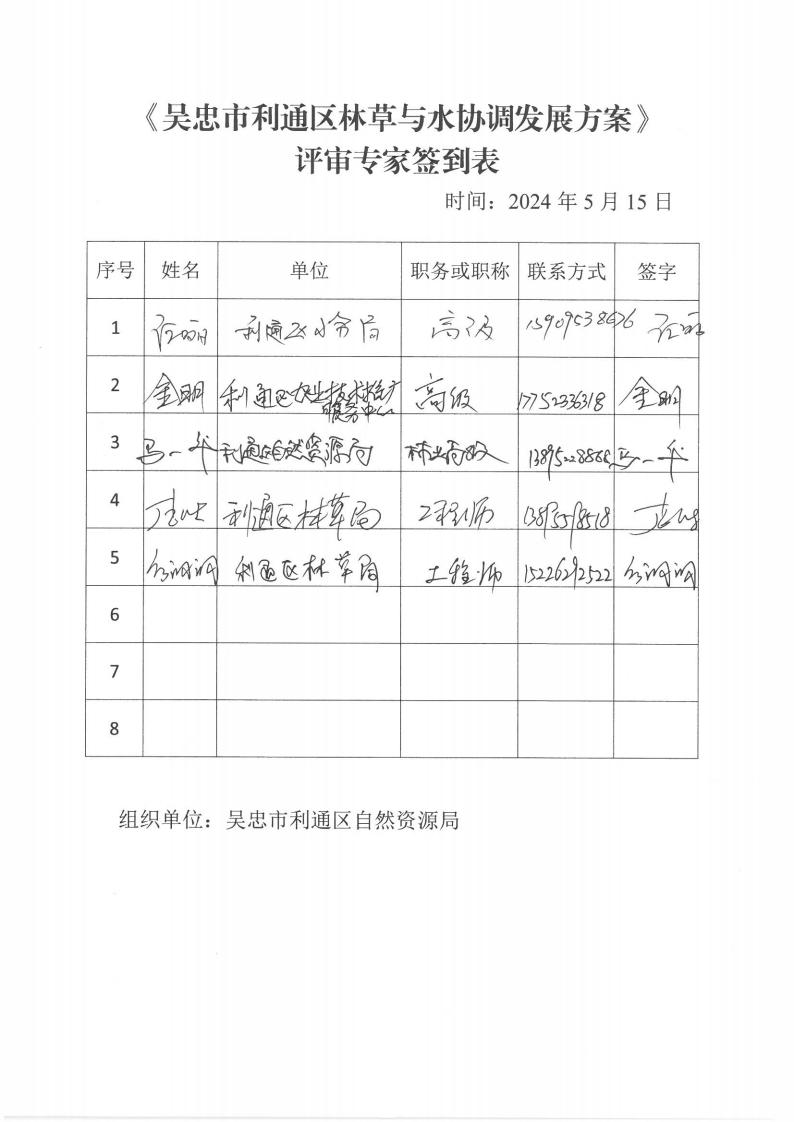 《吴忠市利通区林草与水协调发展方案》
评审专家签到表
时间：2024 年 5 月 15 日
序号 姓名 单位 职务或职称 联系方式 签字
1 任丽 利通区水务局 高级 15909538676 任丽
2 金明 利通区农业技术推广服务中心 高级 17752336318 金明
3 马一平 利通区自然资源局 林业高级 马一平
4 利通区林草局 工程师 13895518518
5 利通区林草局 工程师 15226292522
6
7
8
组织单位：吴忠市利通区自然资源局